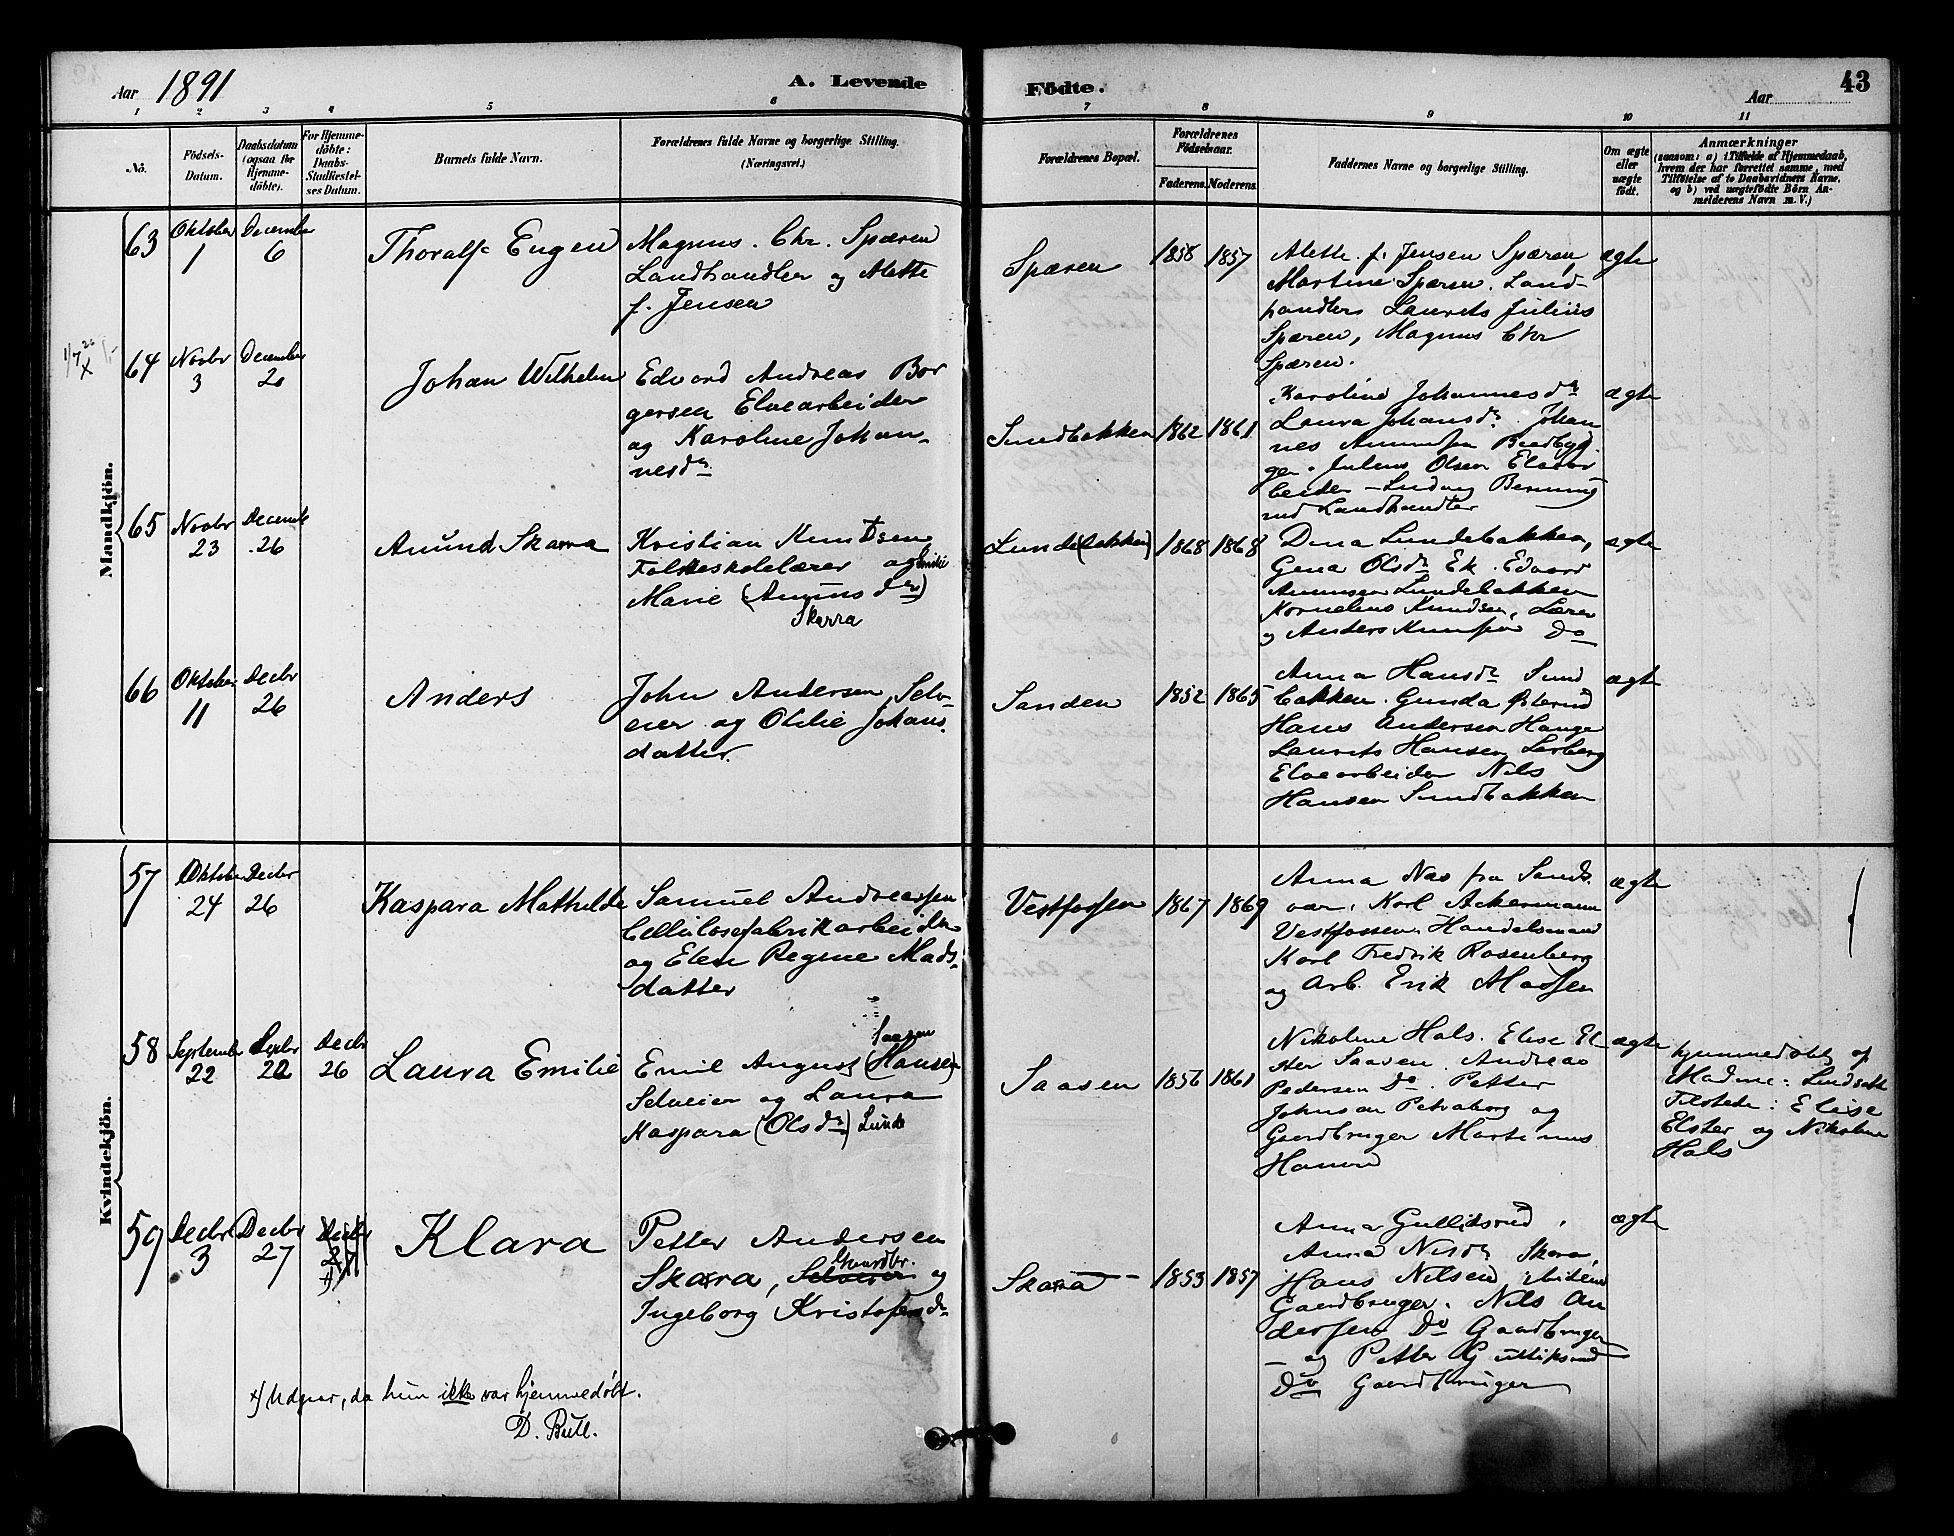 Aar 1891
A. Levende
Födte.
43
Aar
1 2 3 4 5 6 7 8 9 10 11
No.
Födsels-
Datum.
Daabsdatum
(ogsaa for
Hjemme-
döbte).
For Hjemme-
döbte:
Daabs-
Stadfæstel-
ses Datum.
Barnets fulde Navn.
Forældrenes fulde Navne og borgerlige Stilling.
(Næringsvei.)
Forældrenes Bopæl.
Forældrenes
Födselsaar.
Faderens.
Moderens.
Faddernes Navne og borgerlige Stilling.
Om ægte
eller
uægte
födt.
Anmærkninger
(saasom: a) i Tilfælde af Hjemmedaab,
hvem der har forrettet samme, med
Tilföielse af to Daabsvidners Navne,
og b) ved uægtefödte Börn An-
melderens Navn m. V.)
Mandkjön.
63
Oktober
1
December
6
Thoralf Eugen
Magnus. Chr. Spæren
Landhandler og Alette
f. Jensen
Spæren
1858
1857
Alette f. Jensen Spæren,
Martine Spæren. Land-
handlers Laurits Julius
Spæren, Magnus Chr
Spæren.
ægte
64
Novbr
3
December
20
Johan Wilhelm
Edvard Andreas Bor
gersen Elvearbeider
og Karoline Johan-
nesdr
Sundbakken
1862
1861
Karoline Johannesdr
Laura Johansdr Johan
nes Amundsen
Julius Olsen Elvear
beider - Ludvig
rud Landhandler
ægte
65
Novbr
23
Decemb
26
Anund Skarra
Kristian Knudsen
Folkeskolelærer og
Marie (Anunsdr)
Skarra
Lunde(bakken)
1868
1868
Dina Lundebakken,
Gena Olsdr Ek. Edvard
Anunsen Lundebakken
Kornelius Knudsen, Lærer
og Anders Do
ægte
66
Oktober
11
Decbr
26
Anders
John Andersen, Selv-
eier og Otilie Johans-
datter.
Sanden
1852
1865
Anna Hansdr Sund
bakken. Gunda Østerud
Hans Andersen Hauge
Laurits Hansen Lerberg
Elvearbeider Nils
Hansen Sundbakken
ægte
Kvindekjön.
57
Oktober
24
Decbr
26
Kaspara Mathilde
Samuel Andreassen
Cellulosefabrikarbeider
og Elen Regine Mads-
datter
Vestfossen
1867
1869
Anna Næs fra Sands
vær, Karl Ackermann
Vestfossen Handelsmand
Karl Fredrik Rosenberg
og Arb. Erik Madsen
ægte
58
September
22
Septbr
22
Decbr
26
Laura Emilie
Saasen
Emil August (Hansen)
Selveier og Laura
Kaspara (Olsdr) Lunde
Saasen
1856
1861
Nikoline Hals. Elise El
ster Saasen. Andreas
Pedersen Do. Petter
Johnsen Petraborg og
Gaardbruger Martinus
Hansen
ægte
hjemmedøbt af
Madme: Lundsæth
Tilstede: Elise
Elster og Nikoline
Hals
59
Decbr
3
Decbr
27
Decbr
27
x)
Klara
Petter Andersen
Gaardbr.
Skarra, Selveier og
Ingeborg Kristofersdr
Skara
1853
1857
Anna Gulliksrud,
Anna Nilsdr Skara,
Hans Nilsen
Gaardbruger. Nils An
dersen Do Gaardbruger
og Petter Gulliksrud
Do Gaardbruger
ægte
x) Udgaar, da hun ikke var hjemmedøbt.
D. Bull.